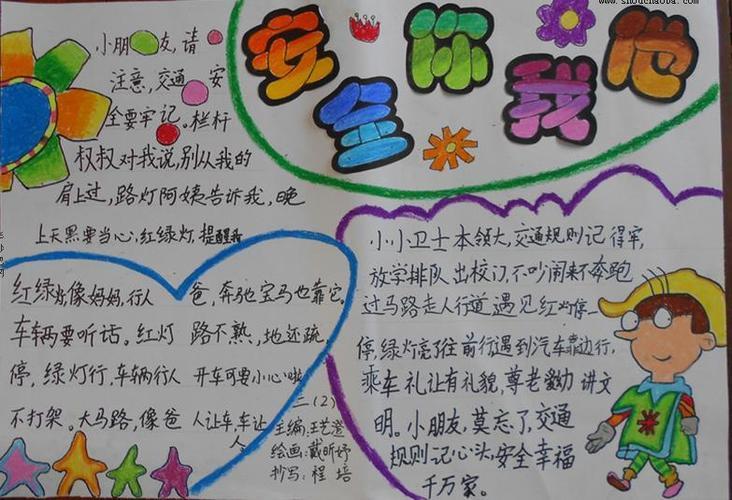 www.shouchaobao.com
安全你我他
小朋友,请
注意,交通安
全要牢记。栏杆
叔叔对我说,别从我的
肩上过,路灯阿姨告诉我,晚
上天黑要当心,红绿灯,提醒我
红绿灯像妈妈,行人
车辆要听话。红灯
停,绿灯行,车辆行人
不打架。大马路,像爸
爸,奔驰宝马也靠它。
路不熟,地还疏,
开车可要小心啦
人让车,车让
人。
三(2)
主编:王艺澄
绘画:戴昕妤
抄写:程培
小小卫士本领大,交通规则记得牢,
放学排队出校门,不吵闹来不奔跑
过马路走人行道遇见红灯停一
停,绿灯亮了往前行遇到汽车靠边行,
乘车礼让有礼貌,尊老爱幼讲文
明。小朋友,莫忘了,交通
规则记心头,安全幸福
千万家。